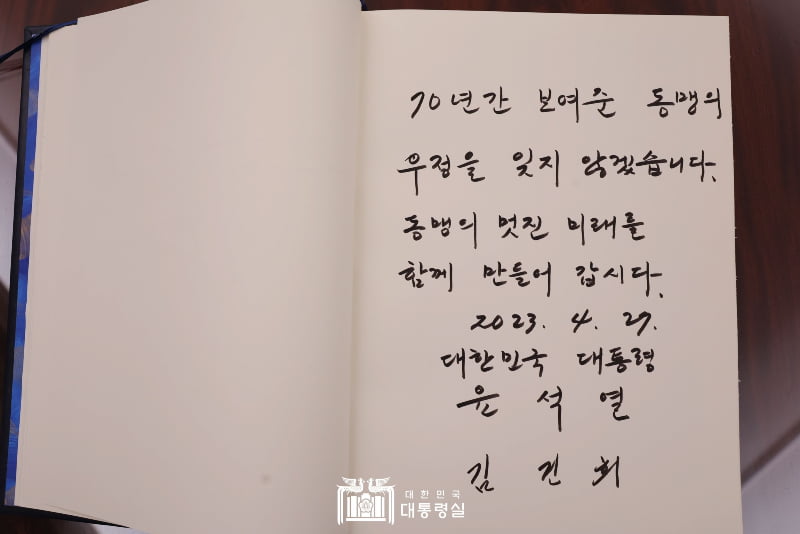 70년간 보여준 동맹의
우정을 잊지 않겠습니다.
동맹의 멋진 미래를
함께 만들어 갑시다.
2023. 4. 27.
대한민국 대통령
윤 석 열
김 건 희
대한민국
대통령실